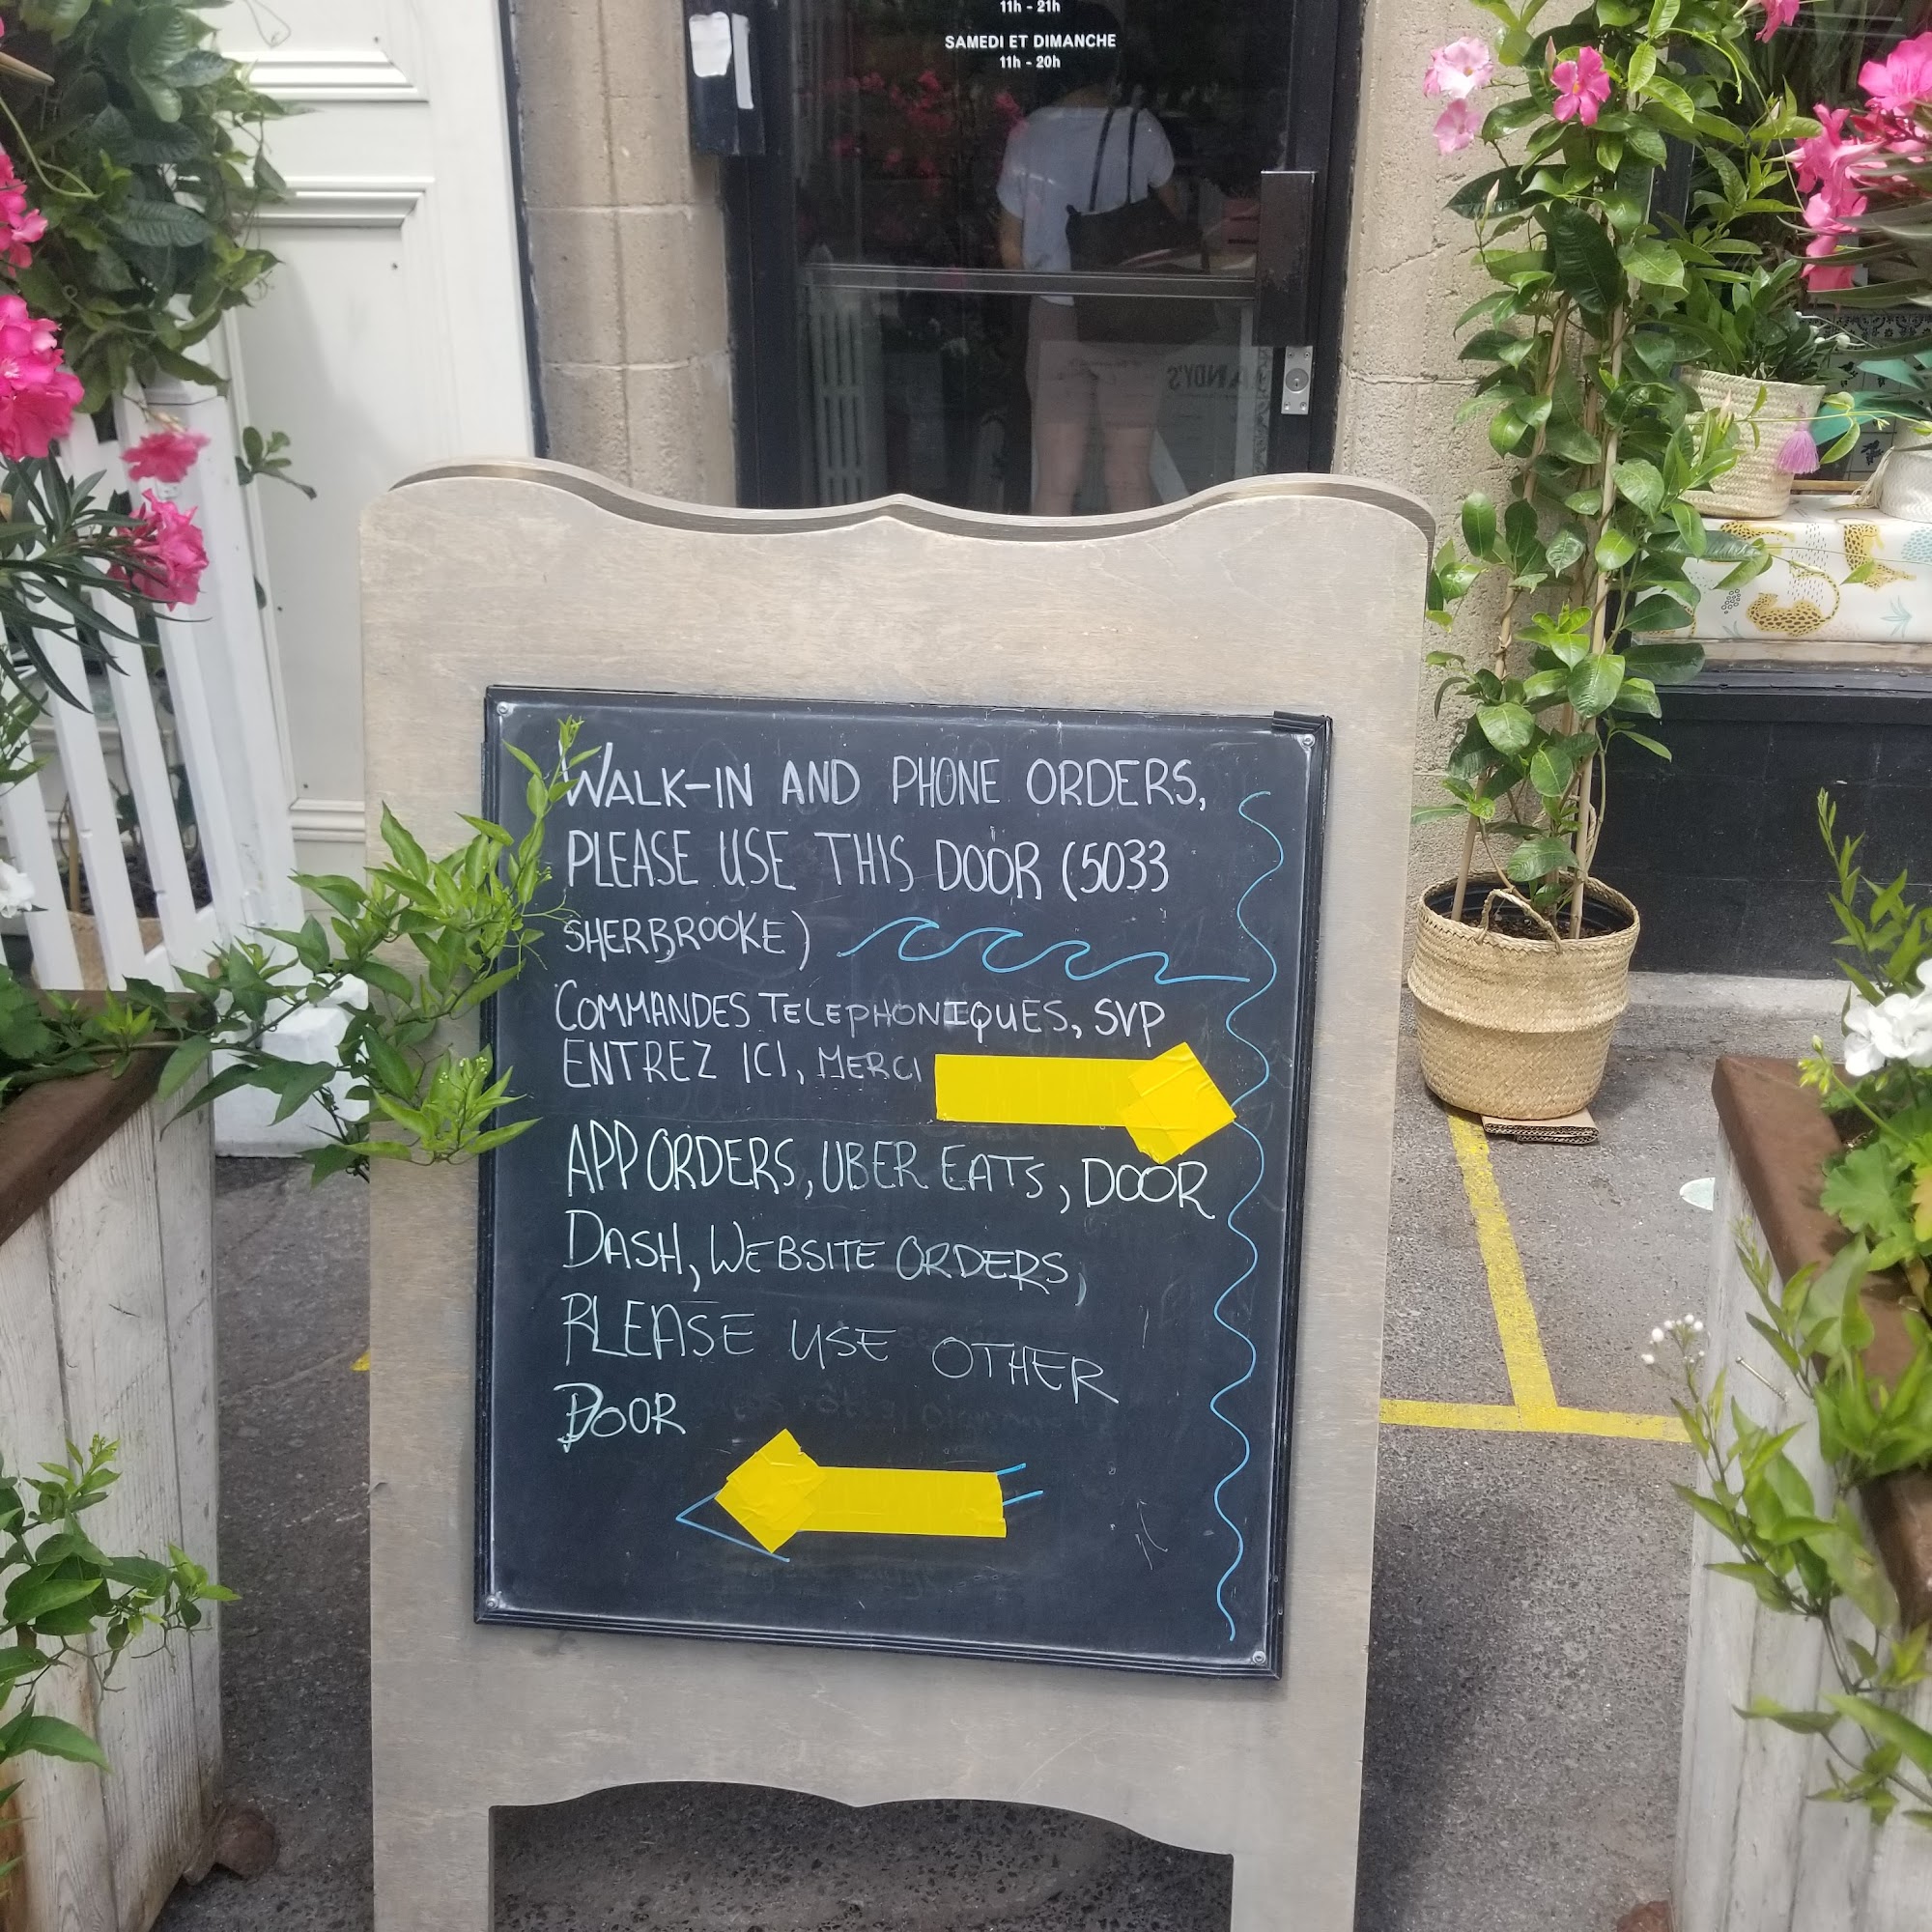 11h - 21h
SAMEDI ET DIMANCHE
11h - 20h
WALK-IN AND PHONE ORDERS,
PLEASE USE THIS DOOR (5033
SHERBROOKE)
COMMANDES TELEPHONIQUES, SVP
ENTREZ ICI, MERCI
APP ORDERS, UBER EATS, DOOR
DASH, WEBSITE ORDERS,
PLEASE USE OTHER
DOOR